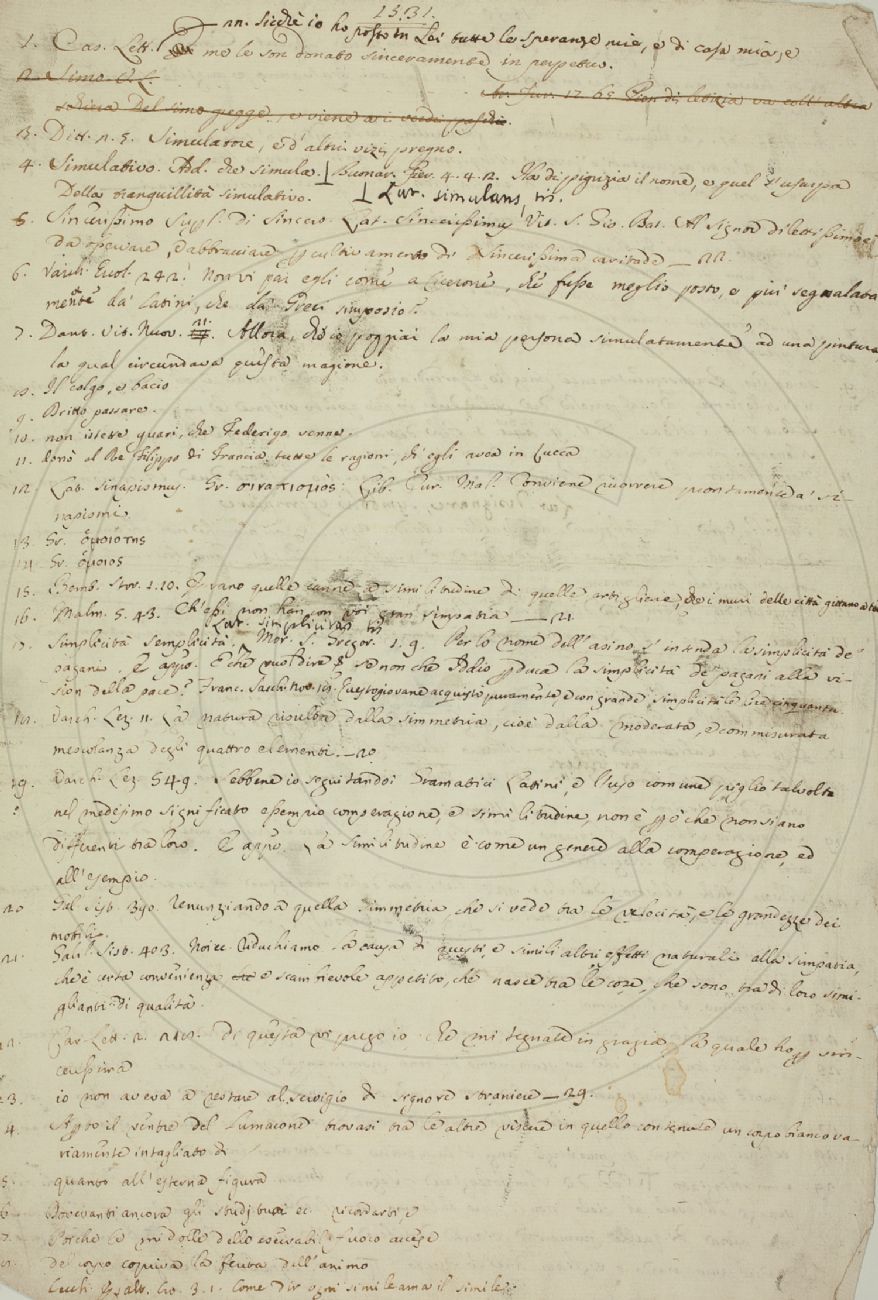 1531.
nn. sicchè io ho posto in Lei tutte le speranze mie, e di casa mia, e
1. Cas. Lett. me le son donato sinceramente in perpetuo.
2. Simo
schiera Del simo gregge, e viene a i verdi paschi.
3. Ditt. 2. 5. Simulatore, e d'altri vizj pregno.
4. Simulativo. Ad. che simula. Buonar. Fier. 4. 4. 12. Ha di pigrizia il nome, e quel s'usurpa
Della tranquillità simulativo. Lat. simulans, tis.
5. Sincerissimo Supl. Di Sincero. Lat. sincerissimus Vit. S. Gio. Bat. Al Signor dilettissimo
da operare, d'abbracciare cultivamento di sincerissima caritade — 22.
6. Varch. Ercol. 242. Non vi par egli come a Cicerone, che fusse meglio posto, e più segnalata
mente da' Latini, che da' Greci simposio?
7. Dant. Vit. Nuov. 21. Allora, dico poggiai la mia persona simulatamente ad una pintura
la qual circundava questa magione.
8. Il colgo, e bacio
9. Dritto passare.
10. non istette guari, che Federigo venne.
11. donò al Re Filippo di Francia tutte le ragioni, ch'egli avea in Lucca
12. Lat. sinapismus. Gr. σιναπισμὸς. Lib. Cur. Mal. Conviene ricorrere prontamente a' si-
napismi
13. Gr. ὁμοιότης
14. Gr. ὅμοιος
15. Bemb. Stor. 1. 10. Erano quelle canne a similitudine di quelle artiglierie, che i muri delle città gittano a
16. Malm. 5. 43. Ch'essi non han con voi gran simpatia — 21
Lat. simplicitas, tis
17. Simplicità semplicità. Mor. S. Gregor. 1. 9. Per lo nome dell'asino s'intenda la simplicità de'
pagani. E appo. E che vuol dire se non che Iddio conduca la simplicità de' pagani alla vi-
sion della pace? Franc. Sacch. Nov. Questo giovane acquistò puramente, e con grande simplicità le lire cinquanta
18. Varch. Lez. 11. La natura risultò dalla simmetria, cioè dalla moderata, e commisurata
mescolanza degli quattro elementi. — 20
19. Varch. Lez. 549. Sebbene io seguitando i Gramatici Latini, e l'uso comune piglio talvolta
nel medesimo significato esempio comperazione, e similitudine, non è però che non siano
differenti tra loro. E appo. La similitudine è come un genere alla comperazione, ed
all'esempio.
20 Gal. Sist. 390. Renunziando a quella simmetria, che si vede tra le velocità, e le grandezze dei
mobili.
21. Galil. Sist. 403. Noi ec. riduchiamo la causa di questi, e simili altri effetti naturali alla simpatia,
che è certa convenienza e scambievole appetito, che nasce tra le cose, che sono tra di loro simi-
glianti di qualità.
22. Car. Lett. 2. 218. Di questa vi prego io che mi tegnate in grazia, la quale ho per sin-
cerissima
23. io non aveva a restare al servigio di signore straniere — 29.
4. Aperto il ventre del Lumacone trovasi tra le altre viscere in quello contenute un corpo bianco va-
riamente intagliato di
5. quanto all'esterna figura
6 Dovevanti ancora gli studj tuoi ec. ricordarti, e
7. Perchè le midolle dello esecrabil fuoco accese
8. del corpo copriva la feruta dell'animo
Cecch. Esalt. Cr. 3. 1. Come dir ogni simile ama il simile.